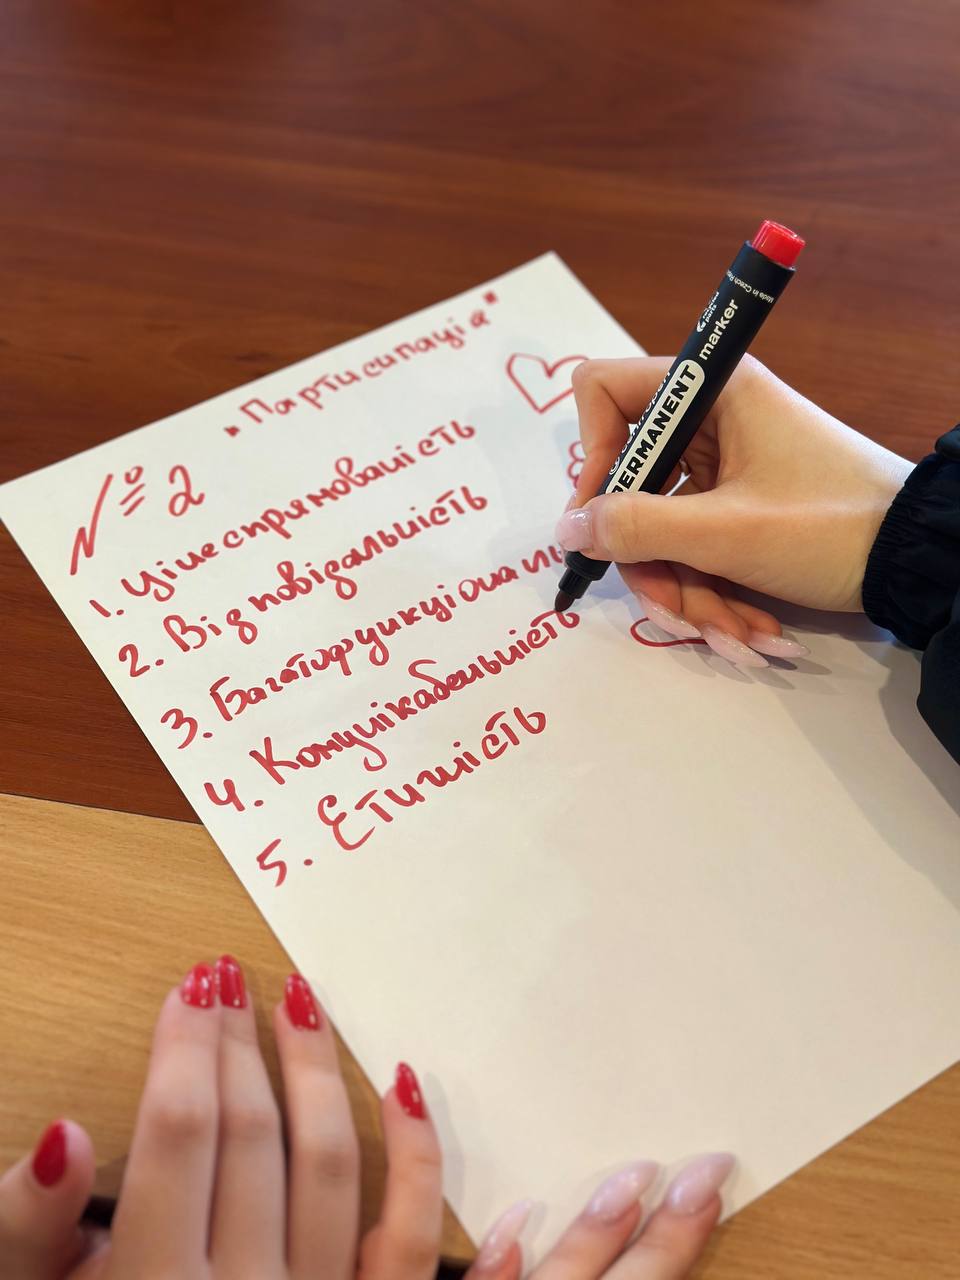 „Партисипація"
№ 2
1. Цілеспрямованість
2. Відповідальність
3. Багатофункціональ
4. Комунікабельність
5. Етичність
PERMANENT
marker
Made in Czech Rep